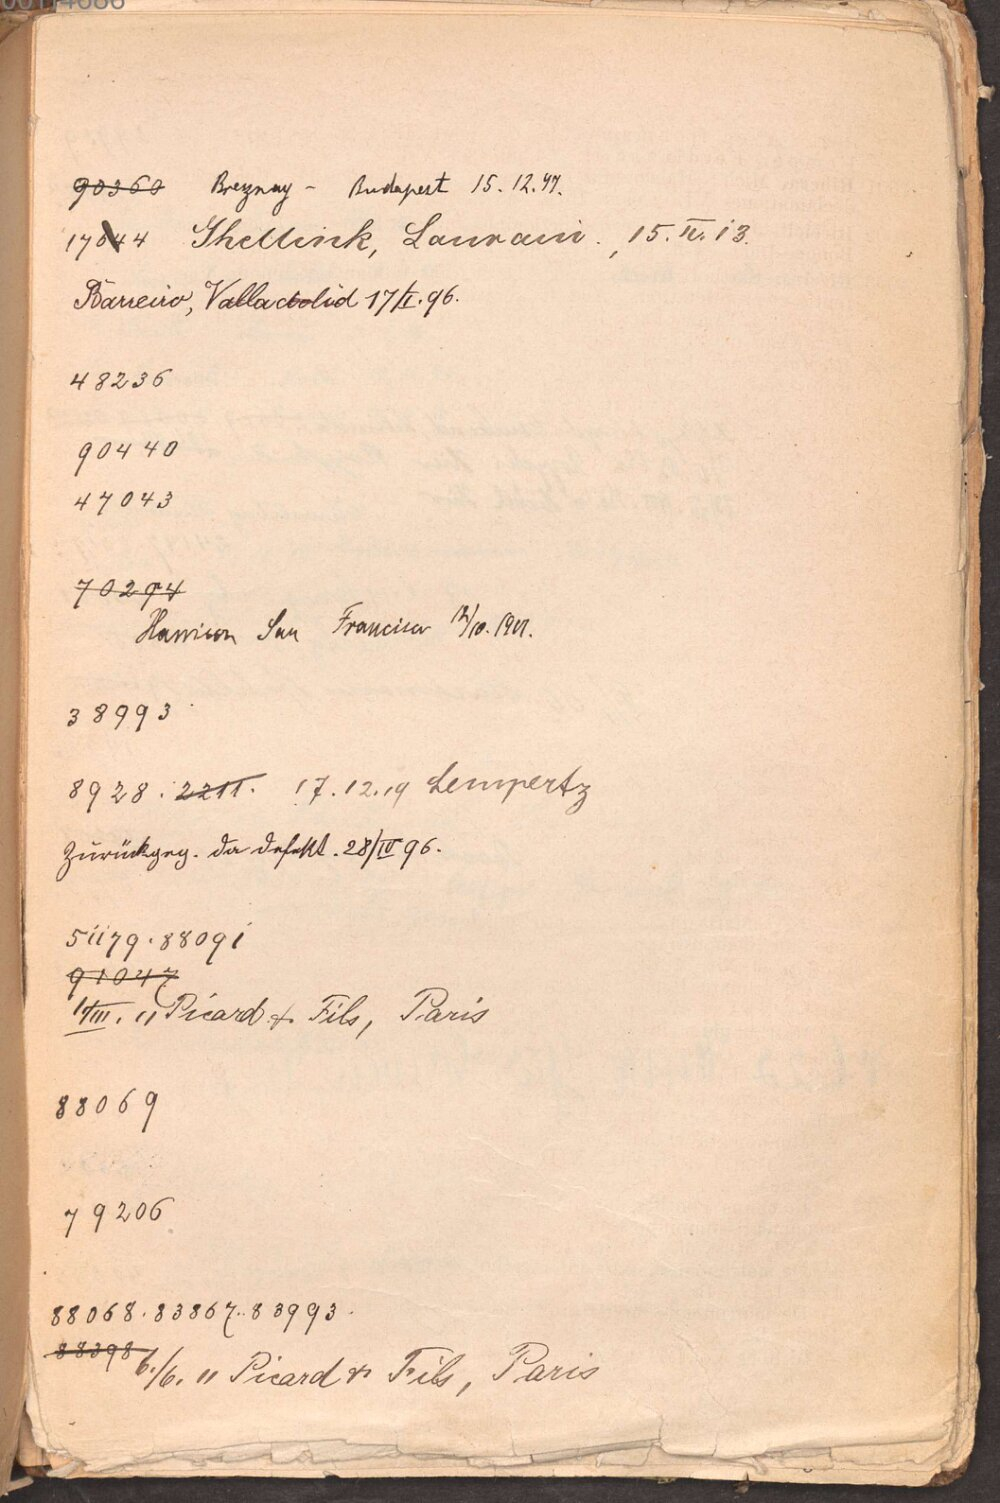 90360 Breznay - Budapest 15.12.97.
17044 Ghellinck, Laurain., 15.IV.13.
Barreiro, Valladolid 17/I.96.
48236
90440
47043
70294
Harrison San Francisco 12/10.1901.
38993
8928. 2211. 17.12.19 Lempertz
Zurückgeg. da defekt. 28/IV 96.
51179.88091
91047
17/III. 11 Picard & Fils, Paris
88069
79206
88068.83867.83993.
88398 6./6. 11 Picard & Fils, Paris